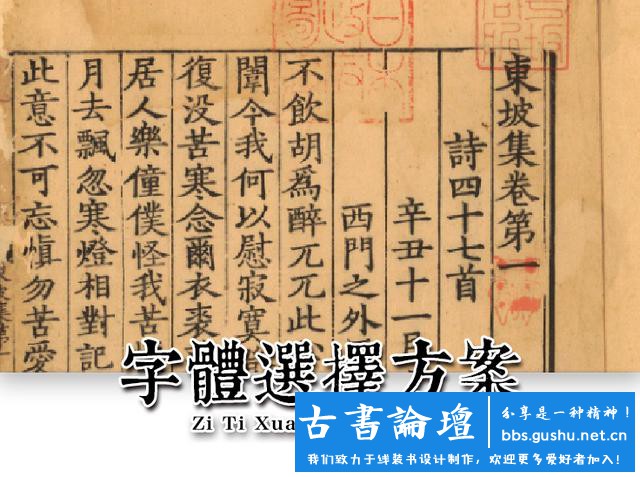 東坡集卷第一
詩四十七首
辛丑十一月
西門之外
不飲胡爲醉兀兀此心
闈今我何以慰寂寞
復没苦寒念爾衣裘
居人樂僮僕怪我苦
月去飄忽寒燈相對記
此意不可忘愼勿苦愛
字體選擇方案
Zi Ti Xua
古書論壇
分享是一种精神！
bbs.gushu.net.cn
我们致力于线装书设计制作，欢迎更多爱好者加入！